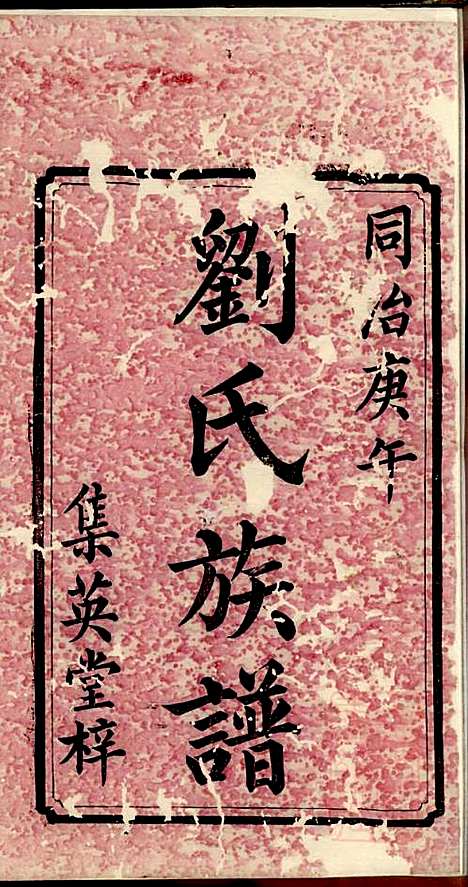 同治庚午
劉氏族譜
集英堂梓